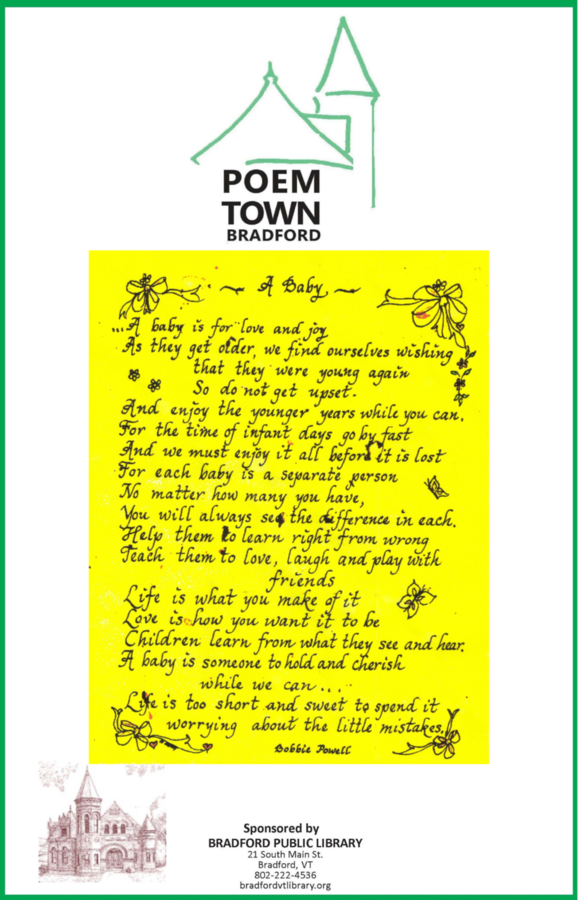 POEM
TOWN
BRADFORD
~ A Baby ~
...A baby is for love and joy
As they get older, we find ourselves wishing
that they were young again
So do not get upset.
And enjoy the younger years while you can.
For the time of infant days go by fast
And we must enjoy it all before it is lost
For each baby is a separate person
No matter how many you have,
You will always see the difference in each.
Help them to learn right from wrong
Teach them to love, laugh and play with
friends
Life is what you make of it
Love is how you want it to be
Children learn from what they see and hear.
A baby is someone to hold and cherish
while we can...
Life is too short and sweet to spend it
worrying about the little mistakes.
Bobbie Powell
Sponsored by
BRADFORD PUBLIC LIBRARY
21 South Main St.
Bradford, VT
802-222-4536
bradfordvtlibrary.org